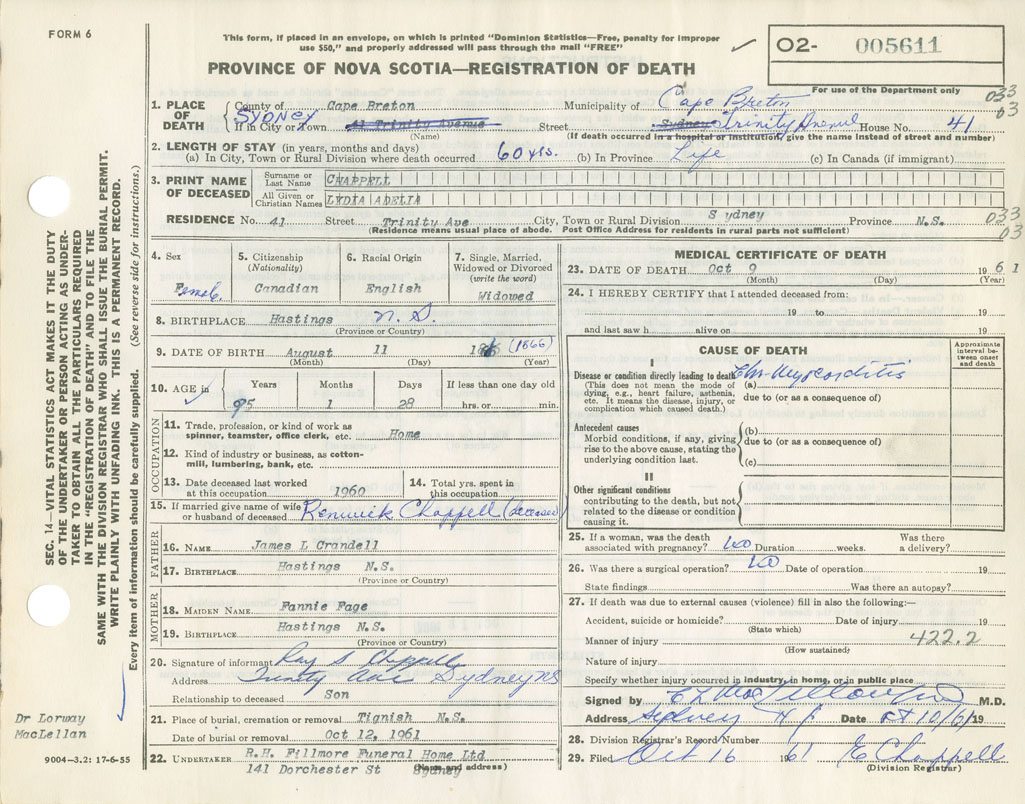 FORM 6
This form, if placed in an envelope, on which is printed "Dominion Statistics—Free, penalty for improper
use $50," and properly addressed will pass through the mail "FREE"
PROVINCE OF NOVA SCOTIA—REGISTRATION OF DEATH
O2- 005611
For use of the Department only
033
03
1. PLACE OF DEATH
County of Cape Breton Municipality of Cape Breton
SYDNEY
If in City or Town 41 Trinity Avenue Street Sydney Trinity Avenue House No. 41
(Name) (If death occurred in a hospital or institution, give the name instead of street and number)
2. LENGTH OF STAY (in years, months and days)
(a) In City, Town or Rural Division where death occurred 60 yrs. (b) In Province Life (c) In Canada (if immigrant)
3. PRINT NAME OF DECEASED
Surname or Last Name CHAPPELL
All Given or Christian Names LYDIA ADELIA
RESIDENCE No. 41 Street Trinity Ave City, Town or Rural Division Sydney Province N.S.
033
03
(Residence means usual place of abode. Post Office Address for residents in rural parts not sufficient)
4. Sex
Female
5. Citizenship
(Nationality)
Canadian
6. Racial Origin
English
7. Single, Married,
Widowed or Divorced
(write the word)
Widowed
8. BIRTHPLACE Hastings N.S.
(Province or Country)
9. DATE OF BIRTH August 11 (1866)
(Month) (Day) (Year)
10. AGE in
Years Months Days If less than one day old
95 1 28 hrs. or min.
OCCUPATION
11. Trade, profession, or kind of work as
spinner, teamster, office clerk, etc. Home
12. Kind of industry or business, as cotton-
mill, lumbering, bank, etc.
13. Date deceased last worked
at this occupation 1960
14. Total yrs. spent in
this occupation
15. If married give name of wife
or husband of deceased Renwick Chappell (deceased)
FATHER
16. NAME James L Crandell
17. BIRTHPLACE Hastings N.S.
(Province or Country)
MOTHER
18. MAIDEN NAME Fannie Fage
19. BIRTHPLACE Hastings N.S.
(Province or Country)
20. Signature of informant Ray S Chappell
Address Trinity Ave Sydney NS
Relationship to deceased Son
21. Place of burial, cremation or removal Tignish N.S.
Date of burial or removal Oct 12, 1961
22. UNDERTAKER R.H. Fillmore Funeral Home Ltd
141 Dorchester St Sydney
(Name and address)
MEDICAL CERTIFICATE OF DEATH
23. DATE OF DEATH Oct 9 1961
(Month) (Day) (Year)
24. I HEREBY CERTIFY that I attended deceased from:
19 to 19
and last saw h alive on 19
CAUSE OF DEATH
Approximate
interval be-
tween onset
and death
I
Disease or condition directly leading to death
(This does not mean the mode of
dying, e.g., heart failure, asthenia,
etc. It means the disease, injury, or
complication which caused death.)
(a) Chr. Myocarditis
due to (or as a consequence of)
Antecedent causes
Morbid conditions, if any, giving
rise to the above cause, stating the
underlying condition last.
(b)
due to (or as a consequence of)
(c)
II
Other significant conditions
contributing to the death, but not
related to the disease or condition
causing it.
25. If a woman, was the death
associated with pregnancy? No Duration weeks. Was there
a delivery?
26. Was there a surgical operation? No Date of operation 19
State findings Was there an autopsy?
27. If death was due to external causes (violence) fill in also the following:—
Accident, suicide or homicide? Date of injury 19
(State which)
Manner of injury 422.2
(How sustained)
Nature of injury
Specify whether injury occurred in industry, in home, or in public place
Signed by M.D.
Address Sydney N S Date Oct 10/61 19
28. Division Registrar's Record Number
29. Filed Oct 16 1961 E Chappell
(Division Registrar)
SEC. 14—VITAL STATISTICS ACT MAKES IT THE DUTY
OF THE UNDERTAKER OR PERSON ACTING AS UNDER-
TAKER TO OBTAIN ALL THE PARTICULARS REQUIRED
IN THE "REGISTRATION OF DEATH" AND TO FILE THE
SAME WITH THE DIVISION REGISTRAR WHO SHALL ISSUE THE BURIAL PERMIT.
WRITE PLAINLY WITH UNFADING INK. THIS IS A PERMANENT RECORD.
Every item of information should be carefully supplied. (See reverse side for instructions.)
Dr Lorway
MacLellan
9004—3.2: 17-6-55